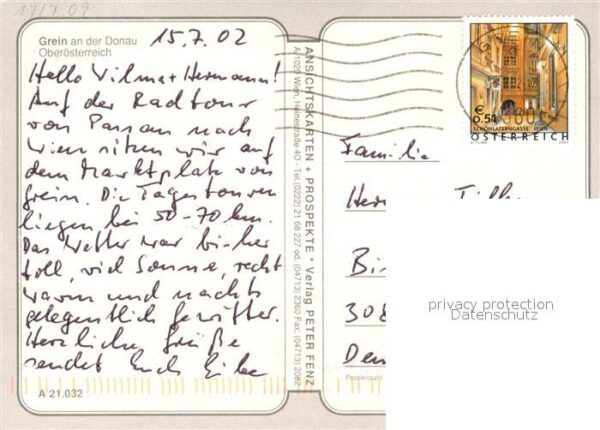 17/7 09
Grein an der Donau
Oberösterreich
15.7.02
Hallo Vilma + Hermann!
Auf der Radtour
von Passau nach
Wien sitzen wir auf
dem Marktplatz von
Grein. Die Tagestouren
liegen bei 50-70 km.
Das Wetter war bisher
toll, viel Sonne, recht
warm und nachts
gelegentlich Gewitter.
Herzliche Grüße
sendet Euch
A 21.032
ANSICHTSKARTEN + PROSPEKTE • Verlag PETER FENZ
A-1020 Wien, Heinestraße 40 - Tel. (0222) 21 68 227 od. (04713) 2360 Fax: (04713) 2082
€ 0,51
SCHÖNLATERNGASSE WIEN
ÖSTERREICH
Familie
Her
Bi
308
Postleitzahl
privacy protection
Datenschutz